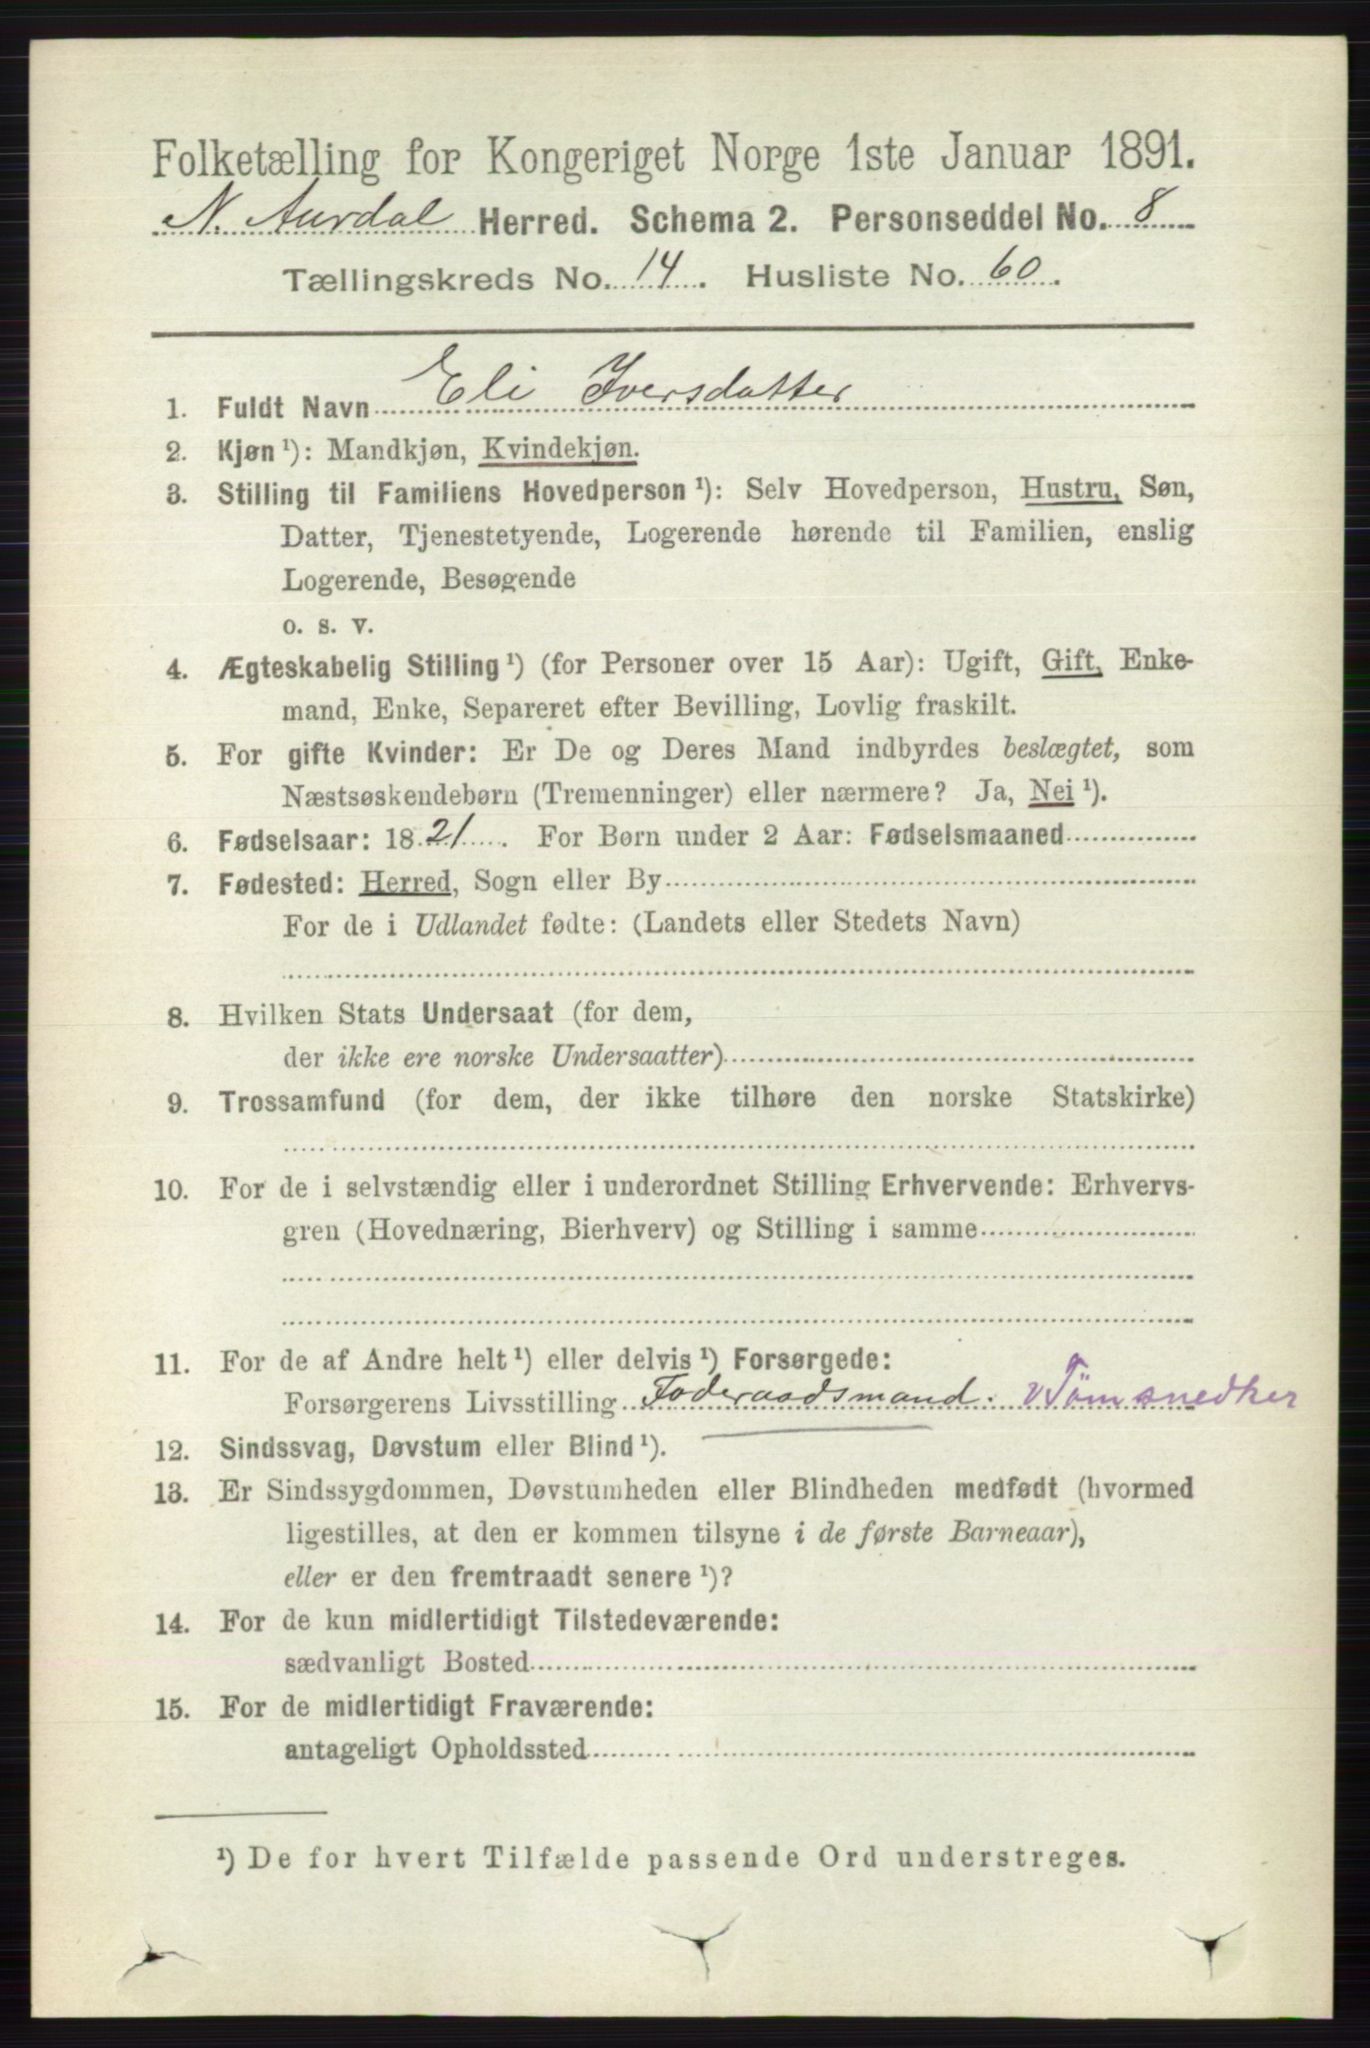 Folketælling for Kongeriget Norge 1ste Januar 1891.
N. Aurdal Herred. Schema 2. Personseddel No. 8
Tællingskreds No. 14. Husliste No. 60.
1. Fuldt Navn Eli Iversdatter
2. Kjøn ¹): Mandkjøn, Kvindekjøn.
3. Stilling til Familiens Hovedperson ¹): Selv Hovedperson, Hustru, Søn,
Datter, Tjenestetyende, Logerende hørende til Familien, enslig
Logerende, Besøgende
o. s. v.
4. Ægteskabelig Stilling ¹) (for Personer over 15 Aar): Ugift, Gift, Enke-
mand, Enke, Separeret efter Bevilling, Lovlig fraskilt.
5. For gifte Kvinder: Er De og Deres Mand indbyrdes beslægtet, som
Næstsøskendebørn (Tremenninger) eller nærmere? Ja, Nei ¹).
6. Fødselsaar: 1821. For Børn under 2 Aar: Fødselsmaaned
7. Fødested: Herred, Sogn eller By
For de i Udlandet fødte: (Landets eller Stedets Navn)
8. Hvilken Stats Undersaat (for dem,
der ikke ere norske Undersaatter)
9. Trossamfund (for dem, der ikke tilhøre den norske Statskirke)
10. For de i selvstændig eller i underordnet Stilling Erhvervende: Erhvervs-
gren (Hovednæring, Bierhverv) og Stilling i samme
11. For de af Andre helt ¹) eller delvis ¹) Forsørgede:
Forsørgerens Livsstilling Foderaadsmand.
12. Sindssvag, Døvstum eller Blind ¹).
13. Er Sindssygdommen, Døvstumheden eller Blindheden medfødt (hvormed
ligestilles, at den er kommen tilsyne i de første Barneaar),
eller er den fremtraadt senere ¹)?
14. For de kun midlertidigt Tilstedeværende:
sædvanligt Bosted
15. For de midlertidigt Fraværende:
antageligt Opholdssted
¹) De for hvert Tilfælde passende Ord understreges.